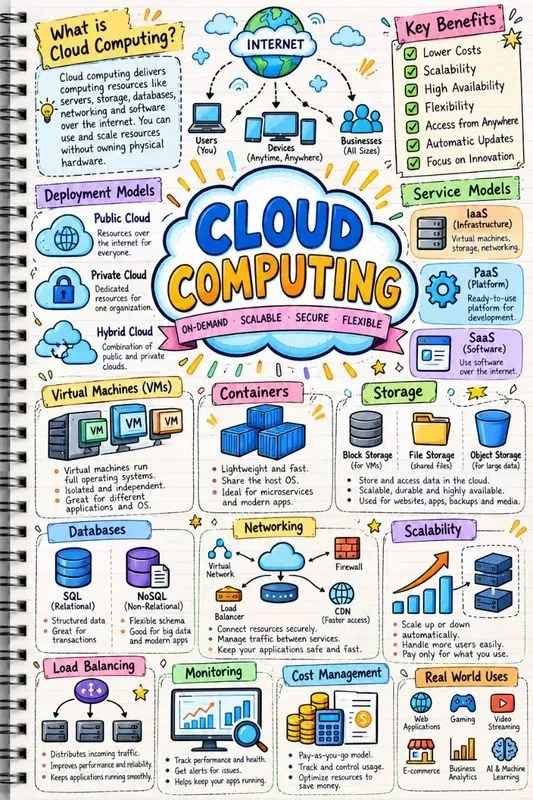 What is
Cloud Computing?
Cloud computing delivers
computing resources like
servers, storage, databases,
networking and software
over the internet. You can
use and scale resources
without owning physical
hardware.
INTERNET
Users
(You)
Devices
(Anytime, Anywhere)
Businesses
(All Sizes)
Key Benefits
Lower Costs
Scalability
High Availability
Flexibility
Access from Anywhere
Automatic Updates
Focus on Innovation
Deployment Models
Public Cloud
Resources over
the internet for
everyone.
Private Cloud
Dedicated
resources for
one organization.
Hybrid Cloud
Combination of
public and private
clouds.
CLOUD
COMPUTING
ON-DEMAND · SCALABLE · SECURE · FLEXIBLE
Service Models
IaaS
(Infrastructure)
Virtual machines,
storage, networking.
PaaS
(Platform)
Ready-to-use
platform for
development.
SaaS
(Software)
Use software
over the internet.
Virtual Machines (VMs)
VM VM VM
• Virtual machines run
full operating systems.
• Isolated and independent.
• Great for different
applications and OS.
Containers
• Lightweight and fast.
• Share the host OS.
• Ideal for microservices
and modern apps.
Storage
Block Storage
(for VMs)
File Storage
(shared files)
Object Storage
(for large data)
• Store and access data in the cloud.
• Scalable, durable and highly available.
• Used for websites, apps, backups and media.
Databases
SQL
(Relational)
• Structured data
• Great for
transactions
NoSQL
(Non-Relational)
• Flexible schema
• Good for big data
and modern apps
Networking
Virtual
Network
Firewall
Load
Balancer
CDN
(Faster access)
• Connect resources securely.
• Manage traffic between services.
• Keep your applications safe and fast.
Scalability
• Scale up or down
automatically.
• Handle more users easily.
• Pay only for what you use.
Load Balancing
• Distributes incoming traffic.
• Improves performance and reliability.
• Keeps applications running smoothly.
Monitoring
• Track performance and health.
• Get alerts for issues.
• Helps keep your apps running.
Cost Management
$
• Pay-as-you-go model.
• Track and control usage.
• Optimize resources to
save money.
Real World Uses
Web
Applications
Gaming
Video
Streaming
E-commerce
Business
Analytics
AI & Machine
Learning